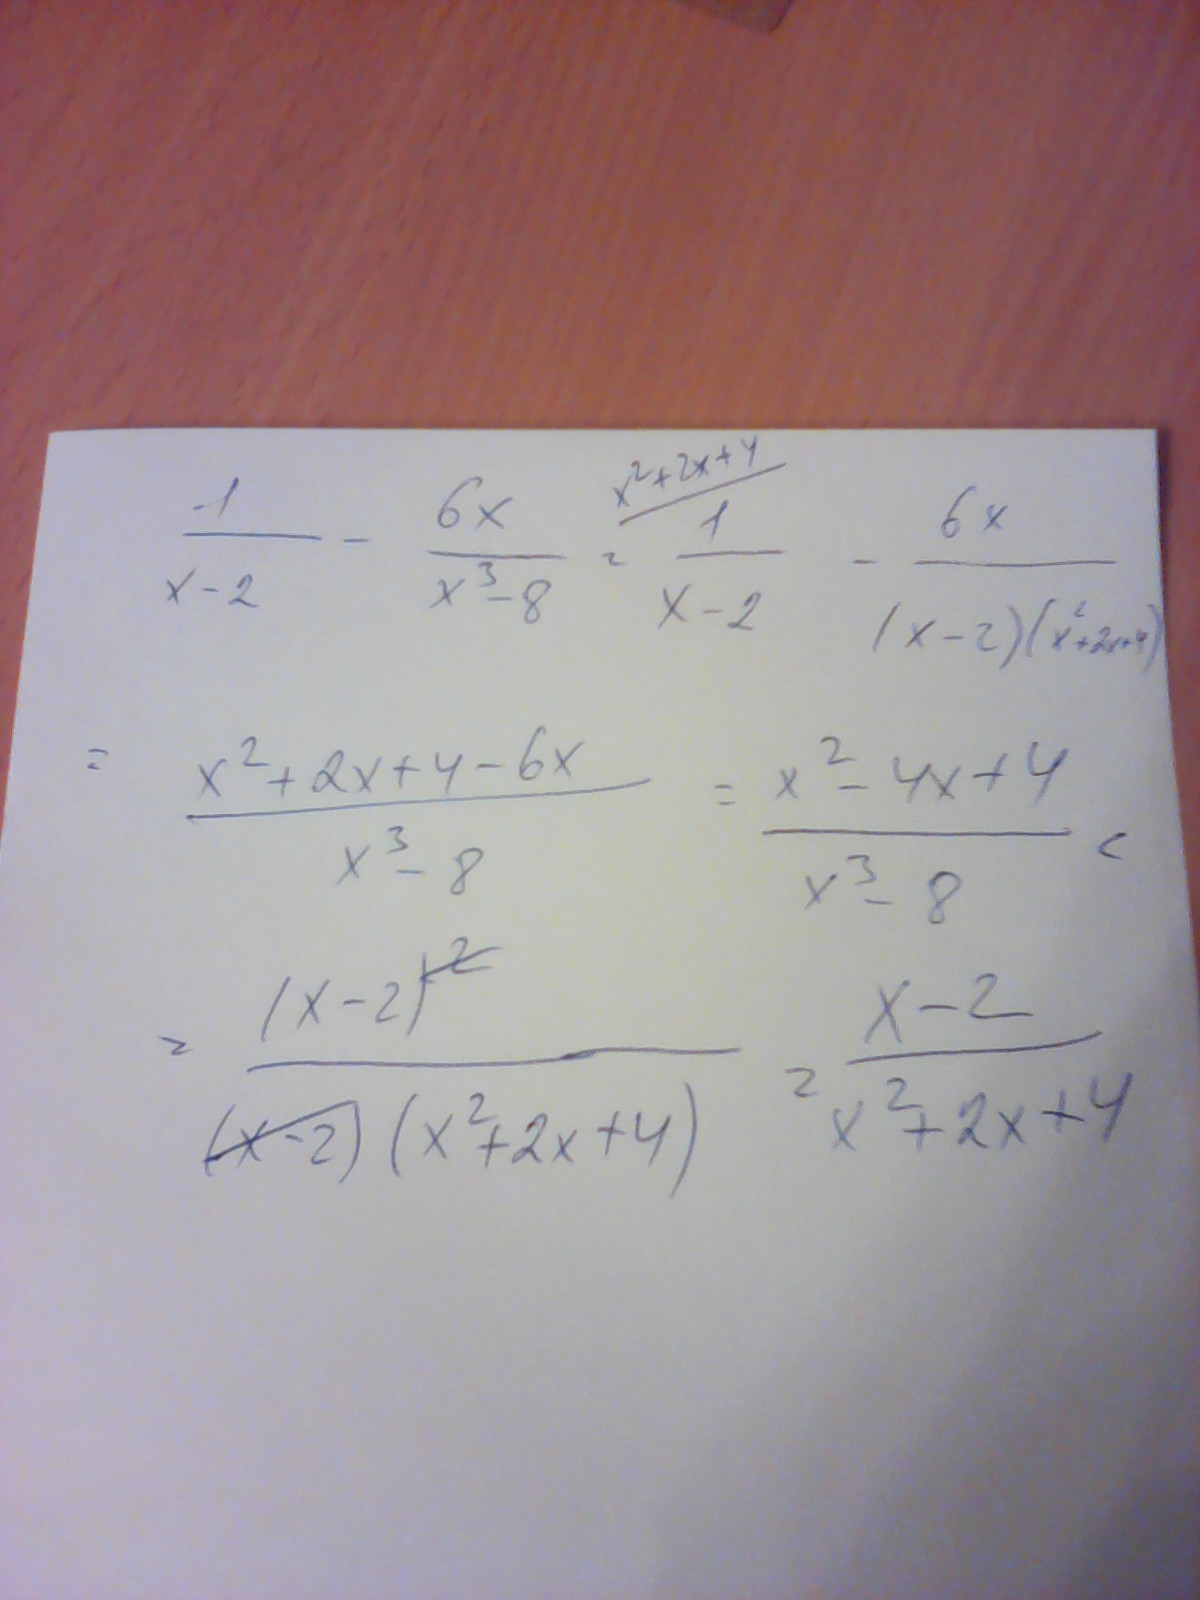 1/(x-2) - 6x/(x³-8) = x²+2x+4/ 1/(x-2) - 6x/((x-2)(x²+2x+4))
= (x²+2x+4-6x)/(x³-8) = (x²-4x+4)/(x³-8) =
= (x-2)²/((x-2)(x²+2x+4)) = (x-2)/(x²+2x+4)